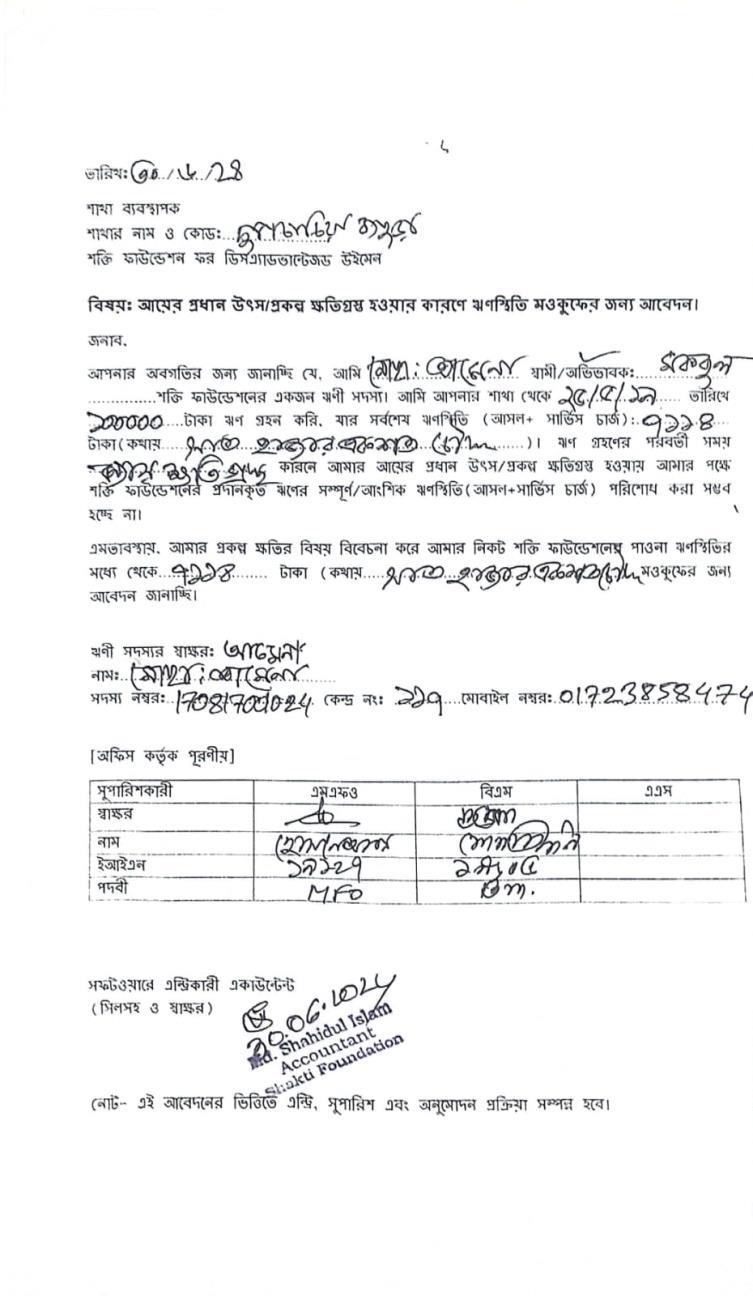 তারিখঃ ৩০/৬/২৪
শাখা ব্যবস্থাপক
শাখার নাম ও কোডঃ... দুপচাচিয়া বগুড়া
শক্তি ফাউন্ডেশন ফর ডিসএ্যাডভান্টেজড উইমেন
বিষয়ঃ আয়ের প্রধান উৎস/প্রকল্প ক্ষতিগ্রস্ত হওয়ার কারণে ঋণস্থিতি মওকুফের জন্য আবেদন।
জনাব,
আপনার অবগতির জন্য জানাচ্ছি যে, আমি মোছা: আমেনা স্বামী/অভিভাবকঃ মকবুল
................শক্তি ফাউন্ডেশনের একজন ঋণী সদস্য। আমি আপনার শাখা থেকে ২৫/৫/১৯ তারিখে
১০০০০০ ....টাকা ঋণ গ্রহন করি, যার সর্বশেষ ঋণস্থিতি (আসল+ সার্ভিস চার্জ):..৭১১৪
টাকা(কথায়.... সাত হাজার একশত চৌদ্দ ......)। ঋণ গ্রহণের পরবর্তী সময়
ক্ষতিগ্রস্থ কারনে আমার আয়ের প্রধান উৎস/প্রকল্প ক্ষতিগ্রস্ত হওয়ায় আমার পক্ষে
শক্তি ফাউন্ডেশনের প্রদানকৃত ঋণের সম্পূর্ণ/আংশিক ঋণস্থিতি(আসল+সার্ভিস চার্জ) পরিশোধ করা সম্ভব
হচ্ছে না।
এমতাবস্থায়, আমার প্রকল্প ক্ষতির বিষয় বিবেচনা করে আমার নিকট শক্তি ফাউন্ডেশনের পাওনা ঋণস্থিতির
মধ্যে থেকে...৭১১৪........ টাকা (কথায়..... সাত হাজার একশত চৌদ্দ মওকুফের জন্য
আবেদন জানাচ্ছি।
ঋণী সদস্যর স্বাক্ষরঃ আমেনা
নামঃ.. মোছা: আমেনা
সদস্য নম্বরঃ কেন্দ্র নংঃ ১১৭....মোবাইল নম্বরঃ.01723858474
[অফিস কর্তৃক পূরণীয়]
সুপারিশকারী এমএফও বিএম এএস
স্বাক্ষর
নাম
ইআইএন ১৯১২৭
পদবী MFO Bm.
সফটওয়ারে এন্ট্রিকারী একাউন্টেন্ট
(সিলসহ ও স্বাক্ষর)
30.06.2024
Md. Shahidul Islam
Accountant
Shakti Foundation
নোট- এই আবেদনের ভিত্তিতে এন্ট্রি, সুপারিশ এবং অনুমোদন প্রক্রিয়া সম্পন্ন হবে।